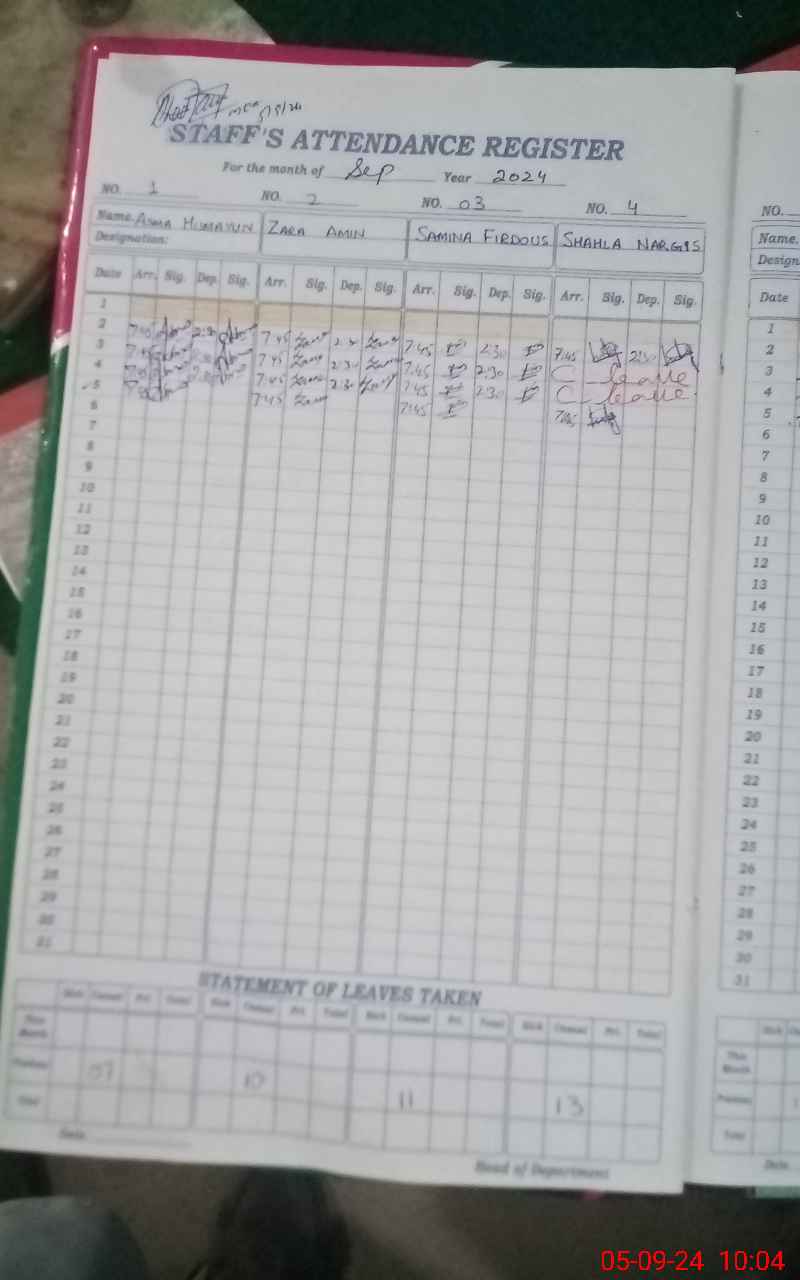 5/9/24
STAFF'S ATTENDANCE REGISTER
For the month of Sep Year 2024
NO. 1 NO. 2 NO. 03 NO. 4 NO.
Name. ASMA HUMAYUN ZARA AMIN SAMINA FIRDOUS SHAHLA NARGIS Name.
Designation: Design
Date Arr. Sig. Dep. Sig. Arr. Sig. Dep. Sig. Arr. Sig. Dep. Sig. Arr. Sig. Dep. Sig. Date
1 1
2 7:45 2:30 7:45 2:30 7:45 2:30 7:45 2:30 2
3 7:45 7:45 2:30 7:45 2:30 C-leave 3
4 7:45 7:45 2:30 7:45 2:30 C-leave 4
5 7:45 7:45 7:45 7:45 5
6 6
7 7
8 8
9 9
10 10
11 11
12 12
13 13
14 14
15 15
16 16
17 17
18 18
19 19
20 20
21 21
22 22
23 23
24 24
25 25
26 26
27 27
28 28
29 29
30 30
31 31
STATEMENT OF LEAVES TAKEN
Sick Casual Pri. Total Sick Casual Pri. Total Sick Casual Pri. Total Sick Casual Pri. Total Sick
This Month This Month
Previous 07 10 11 13 Previous
Total Total
Date Date
Head of Department
05-09-24 10:04